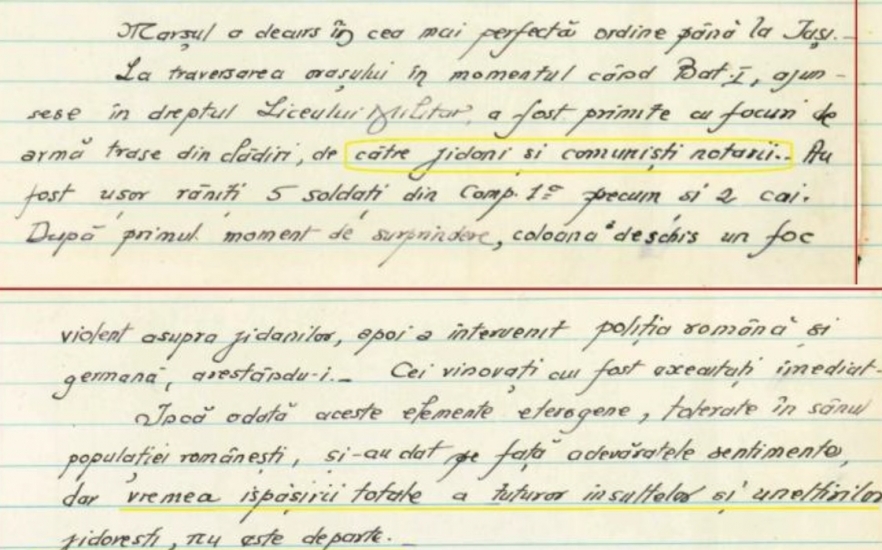 Marșul a decurs în cea mai perfectă ordine până la Iași.-
La traversarea orașului în momentul când Bat. I, ajun-
sese în dreptul Liceului Militar, a fost primite cu focuri de
armă trase din clădiri, de către jidani și comuniști notorii.. Au
fost ușor răniți 5 soldați din Comp. 1ª precum si 2 cai.
După primul moment de surprindere, coloana a deschis un foc
violent asupra jidanilor, apoi a intervenit poliția română si
germană, arestându-i.- Cei vinovați au fost executați imediat-
Încă odată aceste elemente eterogene, tolerate în sânul
populației românești, si-au dat pe față adevăratele sentimente,
dar vremea ispășirii totale a tuturor insultelor și uneltirilor
jidorești, nu este departe.-